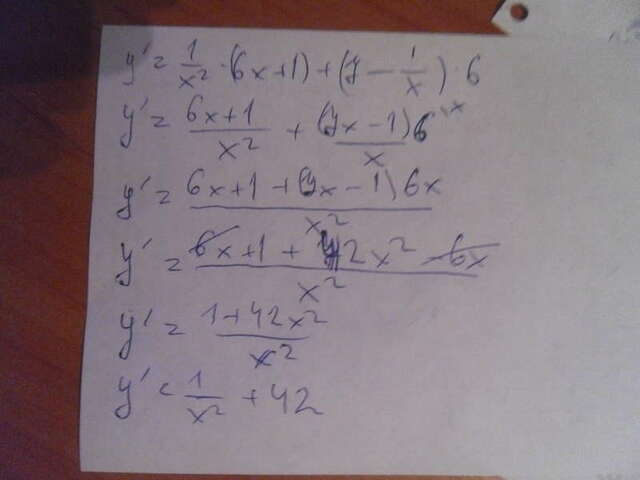 y' = 1/x² · (6x+1) + (7 − 1/x) · 6
y' = 6x+1/x² + (7x−1)6·x/x
y' = 6x+1+(7x−1)6x/x²
y' = 6x+1+42x²−6x/x²
y' = 1+42x²/x²
y' = 1/x² + 42